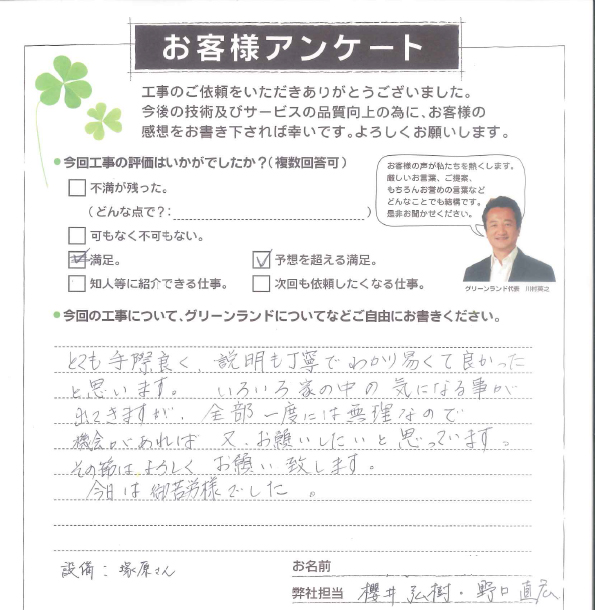 お客様アンケート
工事のご依頼をいただきありがとうございました。
今後の技術及びサービスの品質向上の為に、お客様の
感想をお書き下されば幸いです。よろしくお願いします。
今回工事の評価はいかがでしたか?(複数回答可)
不満が残った。
(どんな点で?: )
可もなく不可もない。
満足。
予想を超える満足。
知人等に紹介できる仕事。
次回も依頼したくなる仕事。
お客様の声が私たちを熱くします。
厳しいお言葉、ご提案、
もちろんお誉めの言葉など
どんなことでも結構です。
是非お聞かせください。
グリーンランド代表 川村英之
今回の工事について、グリーンランドについてなどご自由にお書きください。
とても手際良く、説明も丁寧でわかり易くて良かった
と思います。 いろいろ家の中の気になる事が
出てきますが、全部一度には無理なので
機会があれば 又、お願いしたいと思っています。
その節はよろしくお願い致します。
今日は御苦労様でした。
設備：塚原さん
お名前
弊社担当 櫻井弘樹・野口直広